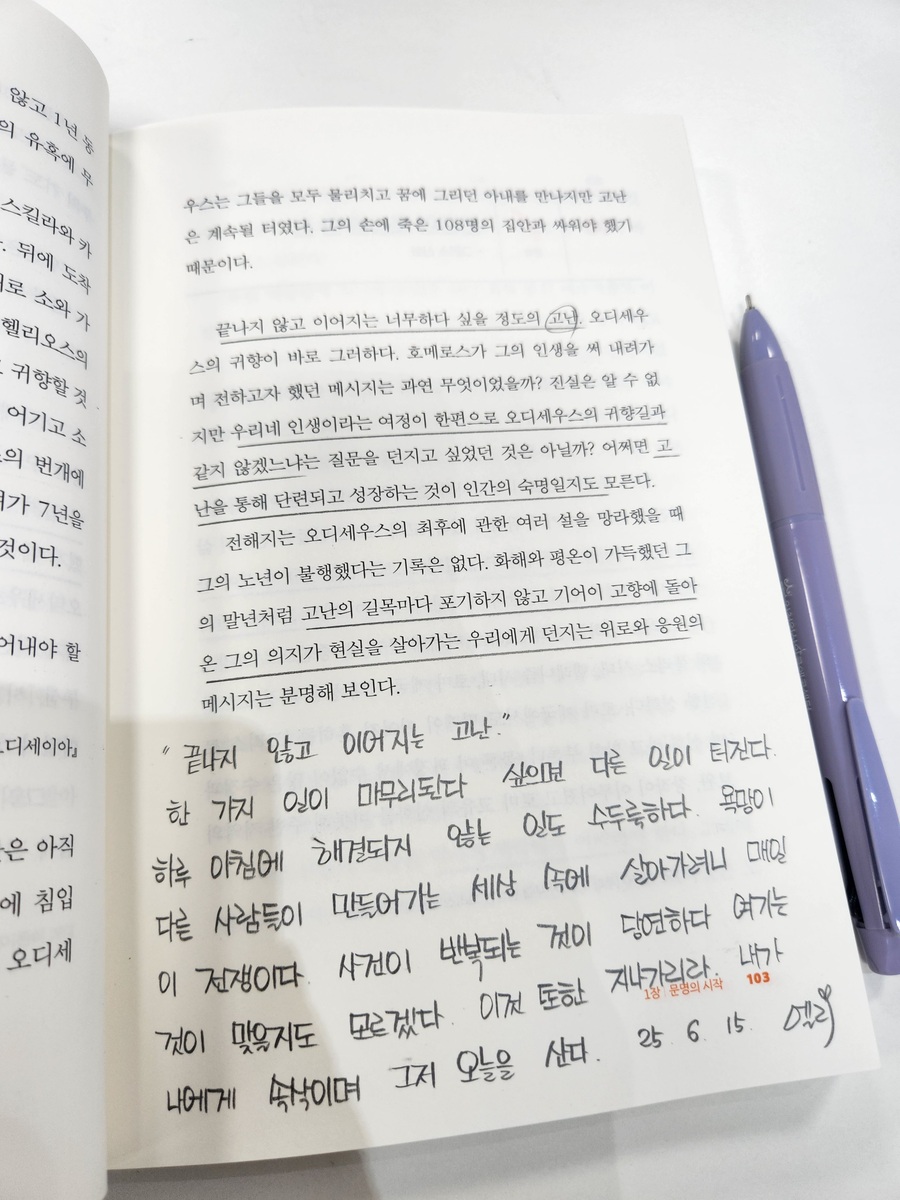 않고 1년 동
의 유혹에 무
스킬라와 카
뒤에 도착
로 소와 가
헬리오스의
귀향할 것
어기고 소
의 번개에
가 7년을
것이다.
어내야 할
오디세이아』
은 아직
에 침입
오디세
우스는 그들을 모두 물리치고 꿈에 그리던 아내를 만나지만 고난
은 계속될 터였다. 그의 손에 죽은 108명의 집안과 싸워야 했기
때문이다.
끝나지 않고 이어지는 너무하다 싶을 정도의 고난. 오디세우
스의 귀향이 바로 그러하다. 호메로스가 그의 인생을 써 내려가
며 전하고자 했던 메시지는 과연 무엇이었을까? 진실은 알 수 없
지만 우리네 인생이라는 여정이 한편으로 오디세우스의 귀향길과
같지 않겠느냐는 질문을 던지고 싶었던 것은 아닐까? 어쩌면 고
난을 통해 단련되고 성장하는 것이 인간의 숙명일지도 모른다.
전해지는 오디세우스의 최후에 관한 여러 설을 망라했을 때
그의 노년이 불행했다는 기록은 없다. 화해와 평온이 가득했던 그
의 말년처럼 고난의 길목마다 포기하지 않고 기어이 고향에 돌아
온 그의 의지가 현실을 살아가는 우리에게 던지는 위로와 응원의
메시지는 분명해 보인다.
"끝나지 않고 이어지는 고난."
한 가지 일이 마무리된다 싶으면 다른 일이 터진다.
하루 아침에 해결되지 않는 일도 수두룩하다. 욕망이
다른 사람들이 만들어가는 세상 속에 살아가려니 매일
이 전쟁이다. 사건이 반복되는 것이 당연하다 여기는
것이 맞을지도 모르겠다. 이것 또한 지나가리라. 내가
나에게 속삭이며 그저 오늘을 산다. 25. 6. 15. 엘리
1장 | 문명의 시작 103